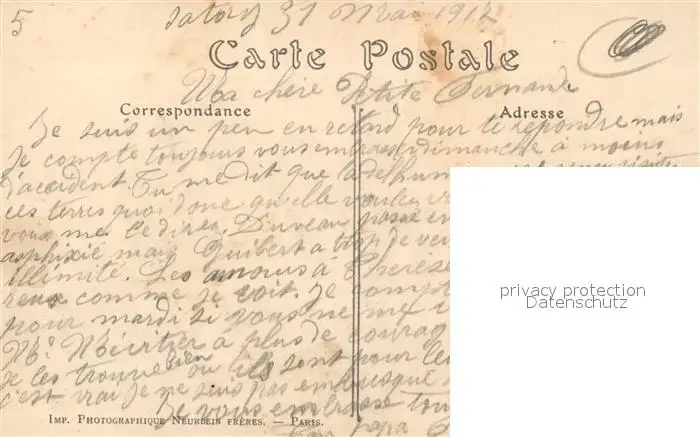 5
Satory 31 Mai 1912
Carte Postale
Ma chère Petite Fernande
Correspondance
Adresse
Je suis un peu en retard pour te répondre mais
je compte toujours vous embrasser dimanche à moins
d'accident. Tu me dit que
ces terres quoi donc qu'elle
vous me le direz. Duveau passe en
asphixié mais Guibert a trop de
illimité. Les amours à Therèze
reux comme je voit. Je compt
pour mardi si vous ne me
Mr Méritier a plus de courag
Je les trouve bien où ils sont pour
c'est vrai je ne suis pas embusqué
Je vous embrasse tou
Ton papa
IMP. PHOTOGRAPHIQUE NEURDEIN FRÈRES. — PARIS.
privacy protection
Datenschutz